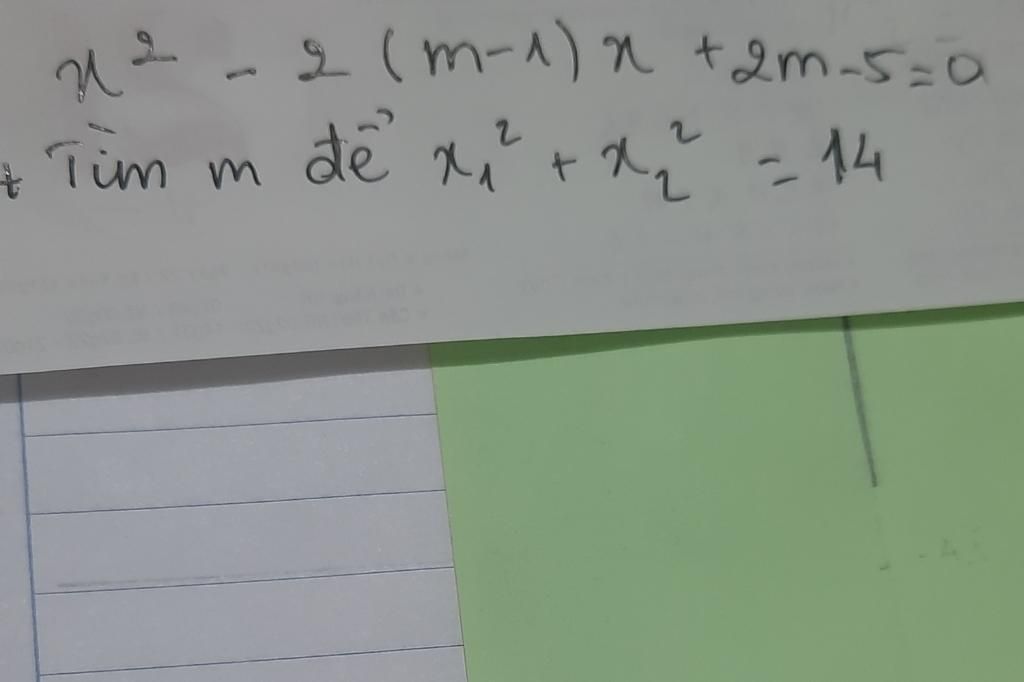 x² - 2 (m-1) x + 2m - 5 = 0
+ Tìm m để x₁² + x₂² = 14